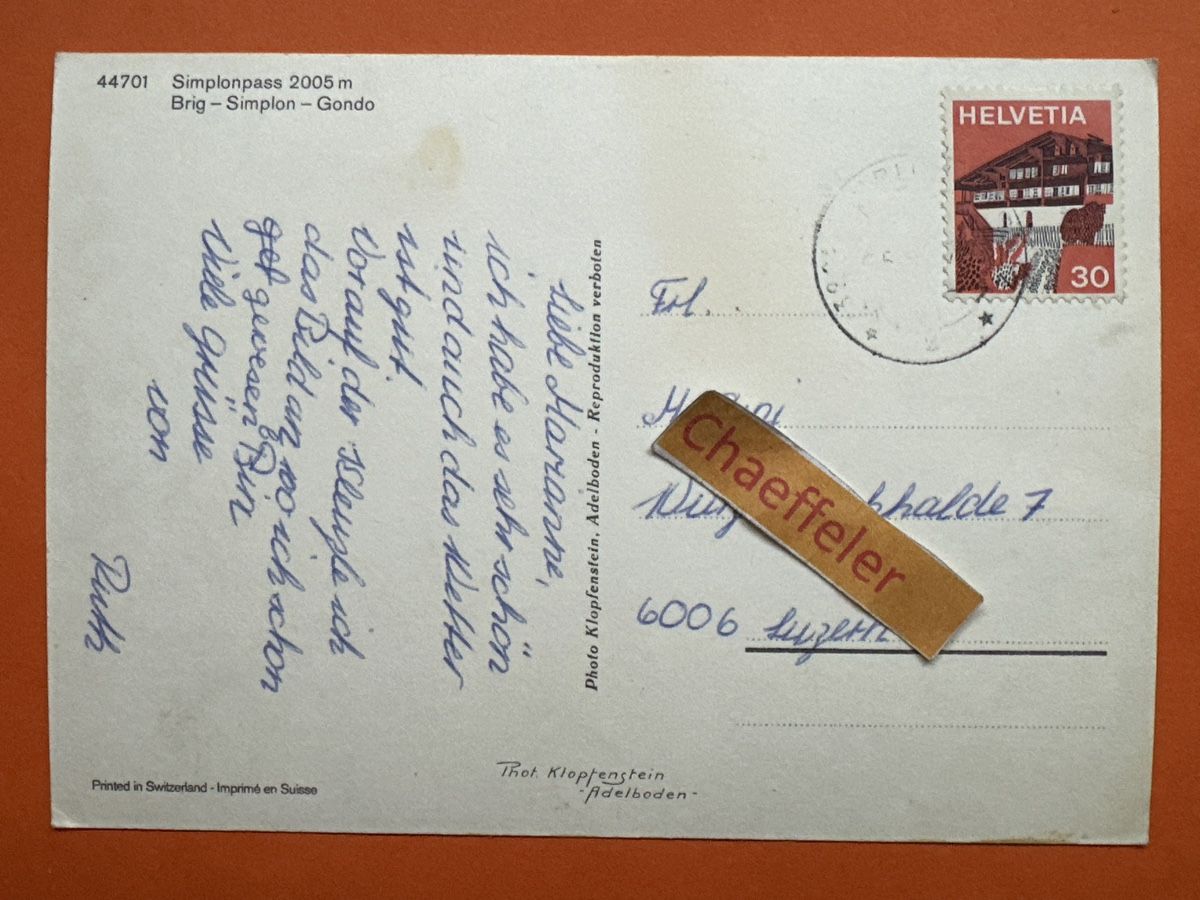 44701 Simplonpass 2005 m
Brig – Simplon – Gondo
HELVETIA
30
Liebe Marianne,
ich habe es sehr schön
und auch das Wetter
ist gut.
Vorauf der kleusle ich
das Bild an wo ich schon
get gewesen Bin
Viele grüsse
von
Ruth
Photo Klopfenstein, Adelboden - Reproduktion verboten
Frl.
Chaeffeler
halde 7
6006 Luzern
Printed in Switzerland - Imprimé en Suisse
Phot. Klopfenstein
- Adelboden -